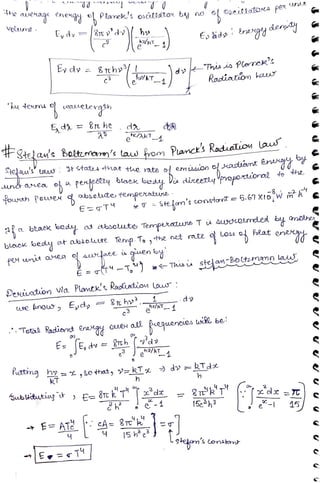 The average energy of Planck's oscillator by no of oscillators per unit
volume.
Eν dν = (8πν² dν / c³) (hν / e^(hν/kT) - 1) Eν dν : Energy density
Eν dν = 8πhν³/c³ (1 / e^(hν/kT) - 1) dν ← This is Planck's Radiation Law
In terms of wavelength
Eλ dλ = 8πhc/λ⁵ · dλ / e^(hc/λkT) - 1
# Stefan's Boltzmann's law from Planck's Radiation Law
Stefan's Law : It states that the rate of emission of radiant Energy by
unit area of a perfectly black body is directly proportional to the
fourth Power of absolute temperature.
E = σT⁴ σ = Stefan's constant = 5.67 × 10⁻⁸ W m⁻² K⁻⁴
If a black body at absolute Temperature T is surrounded by another
black body at absolute Temp T₀, the net rate of loss of heat energy
per unit area of surface is given by:
E = σ(T⁴ - T₀⁴) ← This is Stefan-Boltzmann Law
Derivation via Planck's Radiation Law :
we know, Eν dν = 8πhν³/c³ · 1 / e^(hν/kT) - 1 dν
∴ Total Radiant Energy over all frequencies will be:
E = ∫₀^∞ Eν dν = 8πh/c³ ∫₀^∞ ν³ dν / e^(hν/kT) - 1
Putting hν/kT = x, so that, ν = kTx/h ⇒ dν = kT dx/h
Substituting it, E = 8πk⁴T⁴/c³h³ ∫₀^∞ x³ dx / e^x - 1 = 8π⁵k⁴T⁴/15c³h³ [∵ ∫₀^∞ x³ dx / e^x - 1 = π⁴/15]
→ E = AT⁴c/4 [∵ cA/4 = 8π⁵k⁴/4 15h³c² = σ]
Stefan's constant
→ E = σT⁴